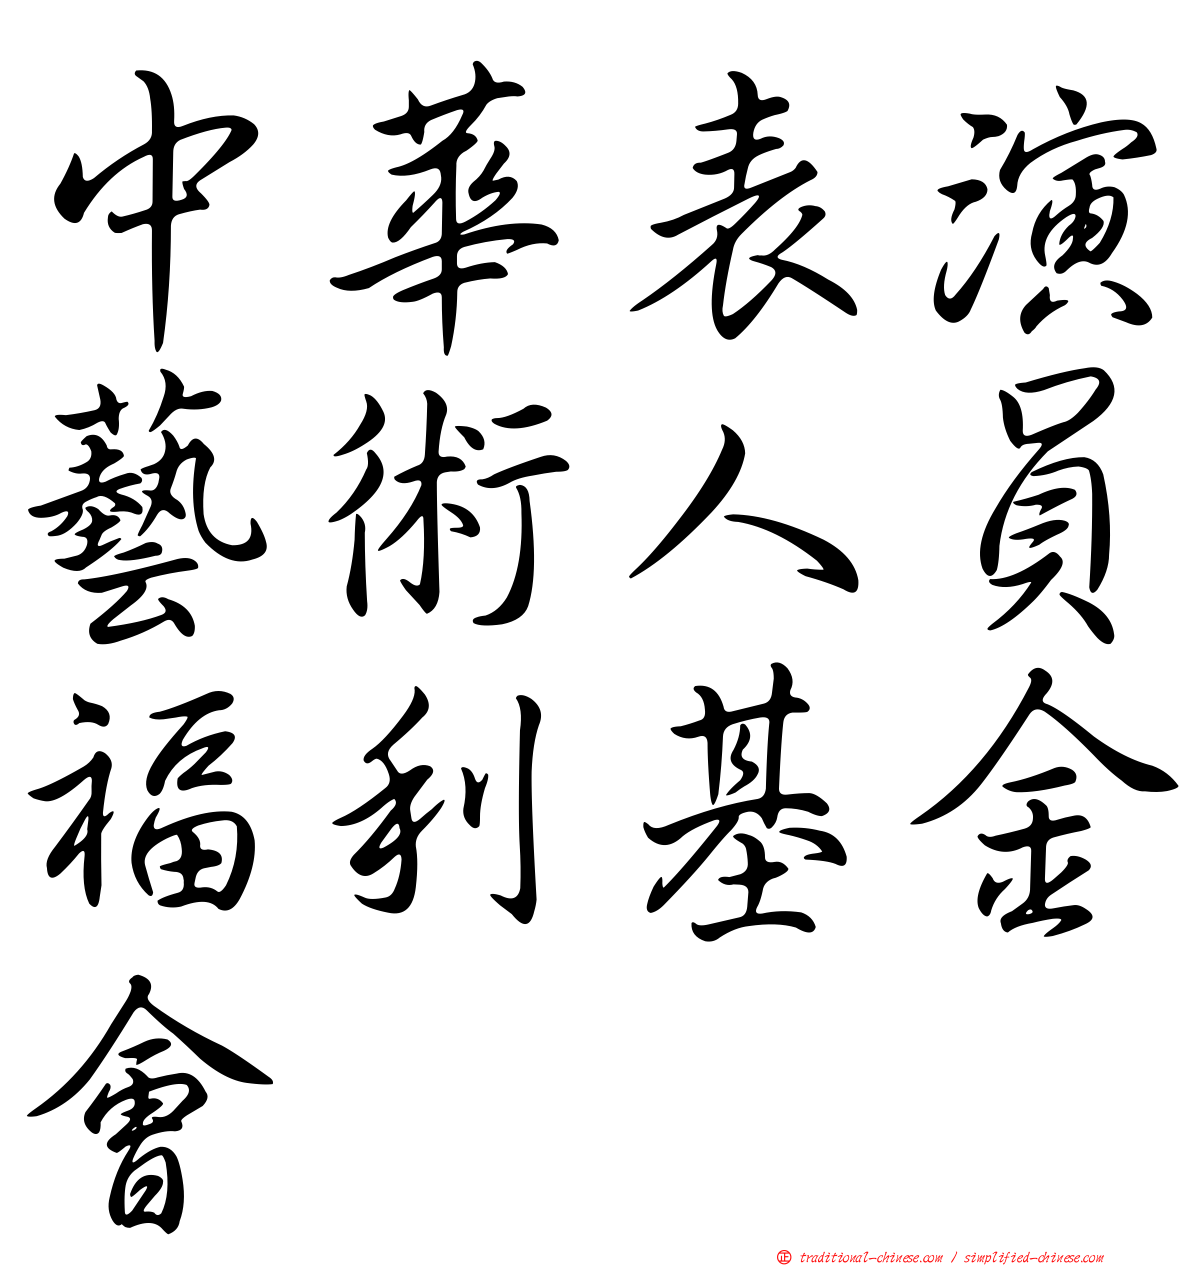 中華表演
藝術人員
福利基金
會
正 traditional-chinese.com / simplified-chinese.com